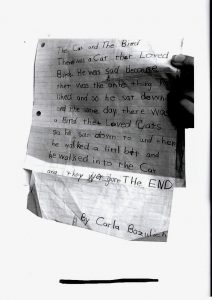 The Cat and The Bird
There was a Cat that Loved
Birds. He was sad Because
that was the only thing he
liked and so he sat down
and the same day there was
a Bird that Loved Cats
so he sat down to and then
he walked a littl bit and
he walked into the Cat
and they wer gone THE END
By Carla Bozulich